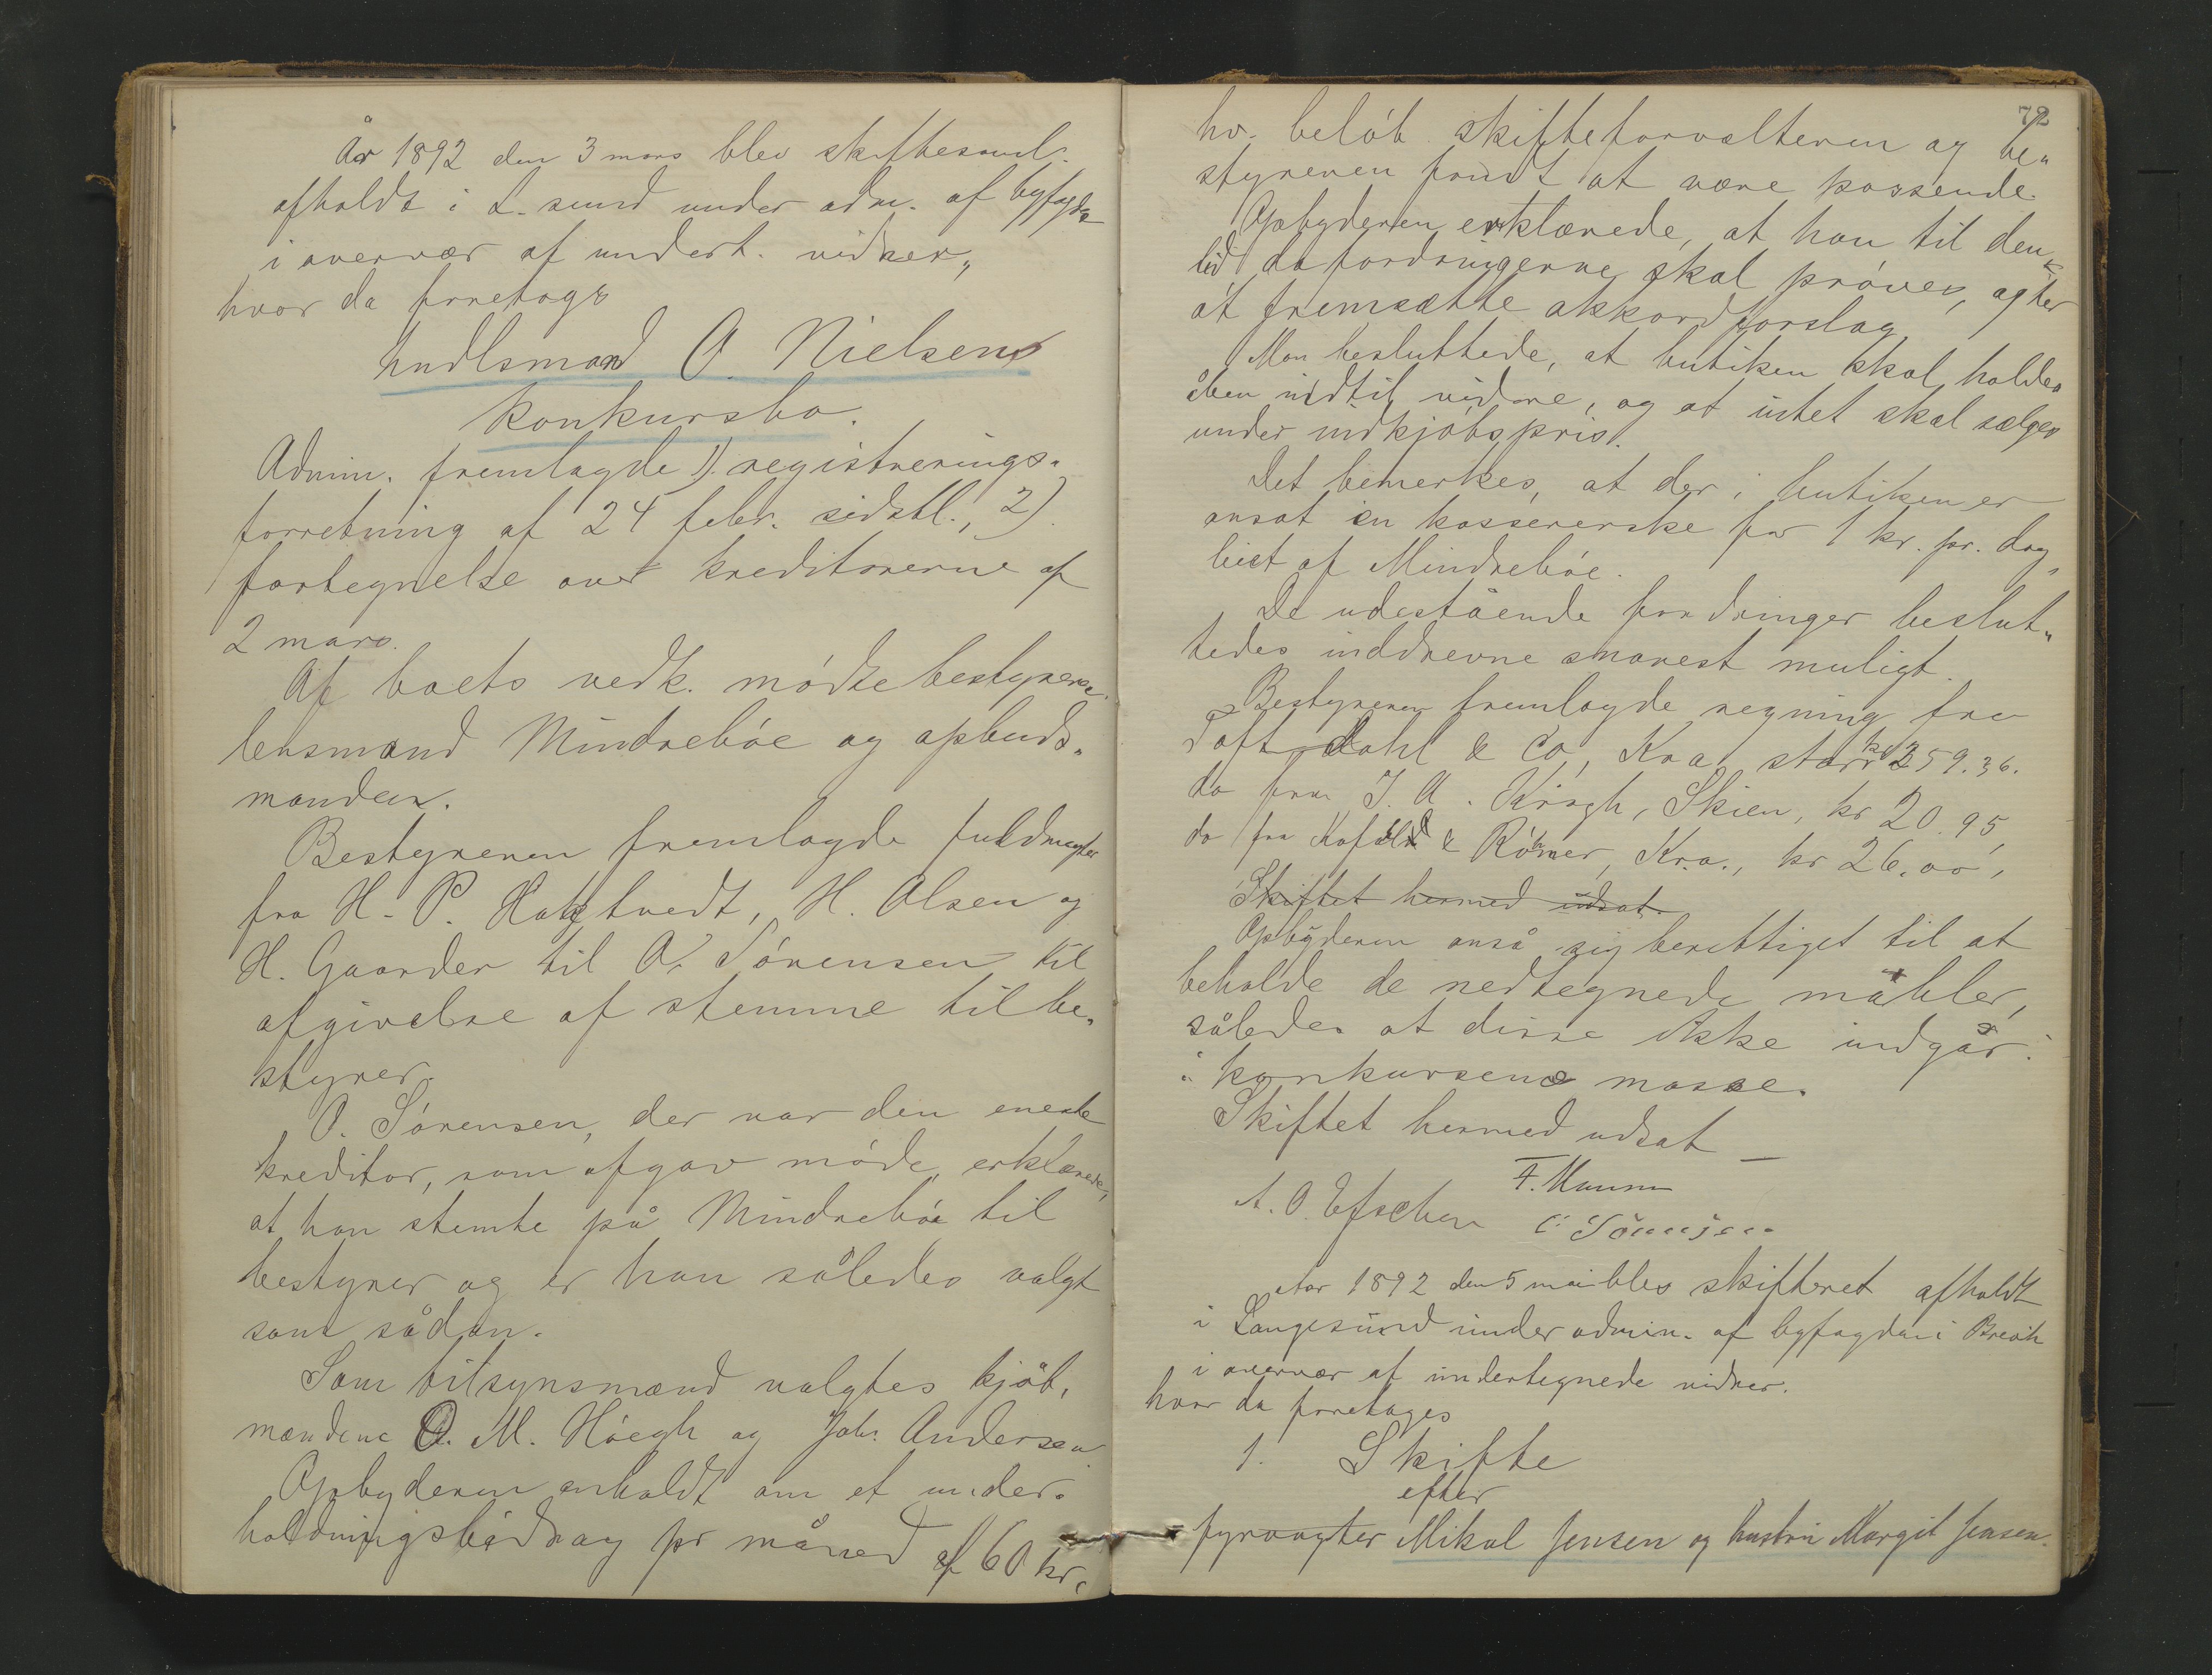 År 1892 den 3 mars blev skiftesaml.
afholdt i L.sund under adm. af byfogden
i overvær af undert. vidner,,
hvor da foretogs
handlsmand O. Nielsens
konkursbo.
Admin. fremlagde 1). registrerings-
forretning af 24 febr. sidstl., 2).
fortegnelse over kreditorerne af
2 mars.
Af boets vedk. mødte bestyreren
lensmand Mindrebøe og opbuds-
manden.
Bestyreren fremlagde fuldmagter
fra H. P. tvedt, H. Olsen og
H. Gaarder til O. Sørensen til
afgivelse af stemme til be-
styrer.
O. Sørensen, der var den eneste
kreditor, som afgav møde, erklærede,
at han stemte på Mindrebøe til
bestyrer og er han således valgt
som sådan.
Som tilsynsmænd valgtes kjøb,
mændene O. M. Høegh og Joh. Andersen
Opbyderen anholdt om et under-
holdningsbidrag pr måned af 60 kr.
72
hv. beløb skifteforvalteren og be-
styreren fandt at være passende.
Opbyderen erklærede, at han til den
tid da fordringerne skal prøves, agter
at fremsætte akkordforslag.
Man besluttede, at butiken skal holdes
åben indtil videre, og at intet skal sælges
under indkjøbspris.
Det bemerkes, at der i butiken er
ansat en kassererske for 1 kr. pr. dag,
leiet af Mindrebøe.
De udestående fordringer beslut-
tedes inddrevne snarest muligt.
Bestyreren fremlagde regning fra
Toft dahl & Co, Kra, stor kr 259.36.
do fra J. A. Krogh, Skien, kr 20.95,
do fra & Rømer, Kra., kr 26.00,
Skiftet hermed udsat.
Opbyderen anså sig berettiget til at
beholde de nedtegnede møbler,
således at disse ikke indgår
i konkursens masse.
Skiftet hermed udsat —
F.
A. O. C. Tønnisen
Aar 1892 den 5 mai blev skifteret afholdt
i Langesund under admin. af byfogden i Brevik
i overvær af undertegnede vidner.
hvor da foretages
1. Skifte
efter
fyrvogter Mikal Jensen og hustru Margit Jensen.